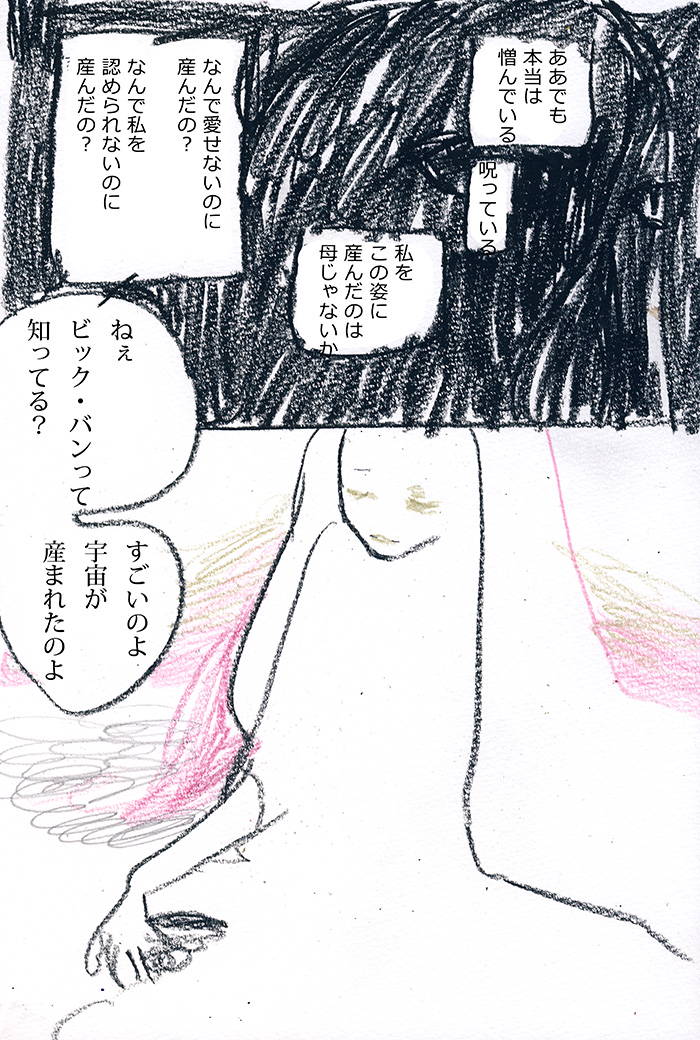 ああでも
本当は
憎んでいる
呪っている
私を
この姿に
産んだのは
母じゃないか
なんで愛せないのに
産んだの？
なんで私を
認められないのに
産んだの？
ねぇ
ビック・バンって
知ってる？
すごいのよ
宇宙が
産まれたのよ